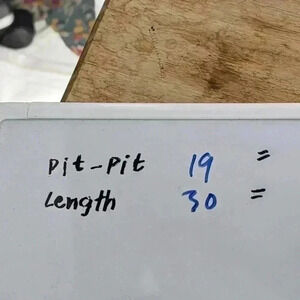 pit-pit 19 =
Length 30 =